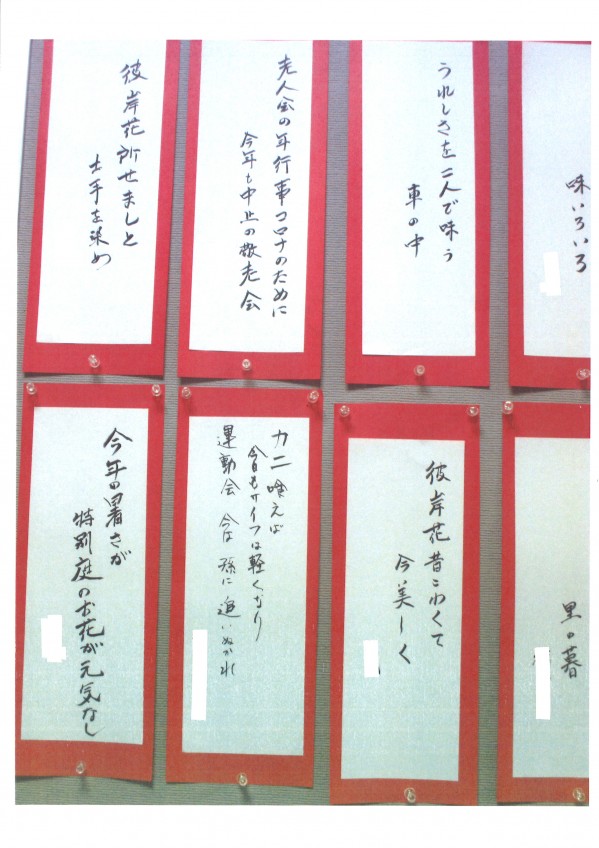 味いろいろ
うれしさを二人で味う
車の中
老人会の年行事コロナのために
今年も中止の敬老会
彼岸花所せましと
土手を染め
里の暮
彼岸花昔こわくて
今美しく
カニ喰えば
今日もサイフは軽くなり
運動会 今は 孫に 追いぬかれ
今年の暑さが
特別庭のお花が元気なし